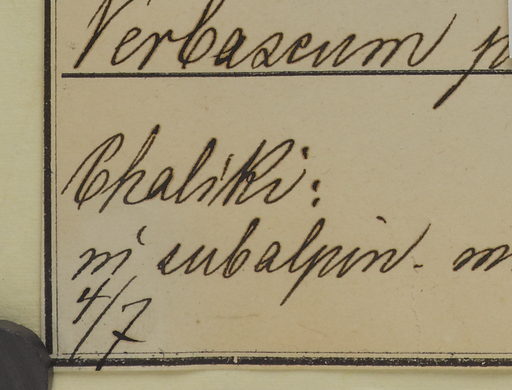 Verbascum p
Chaliki:
in subalpin. m
4/7